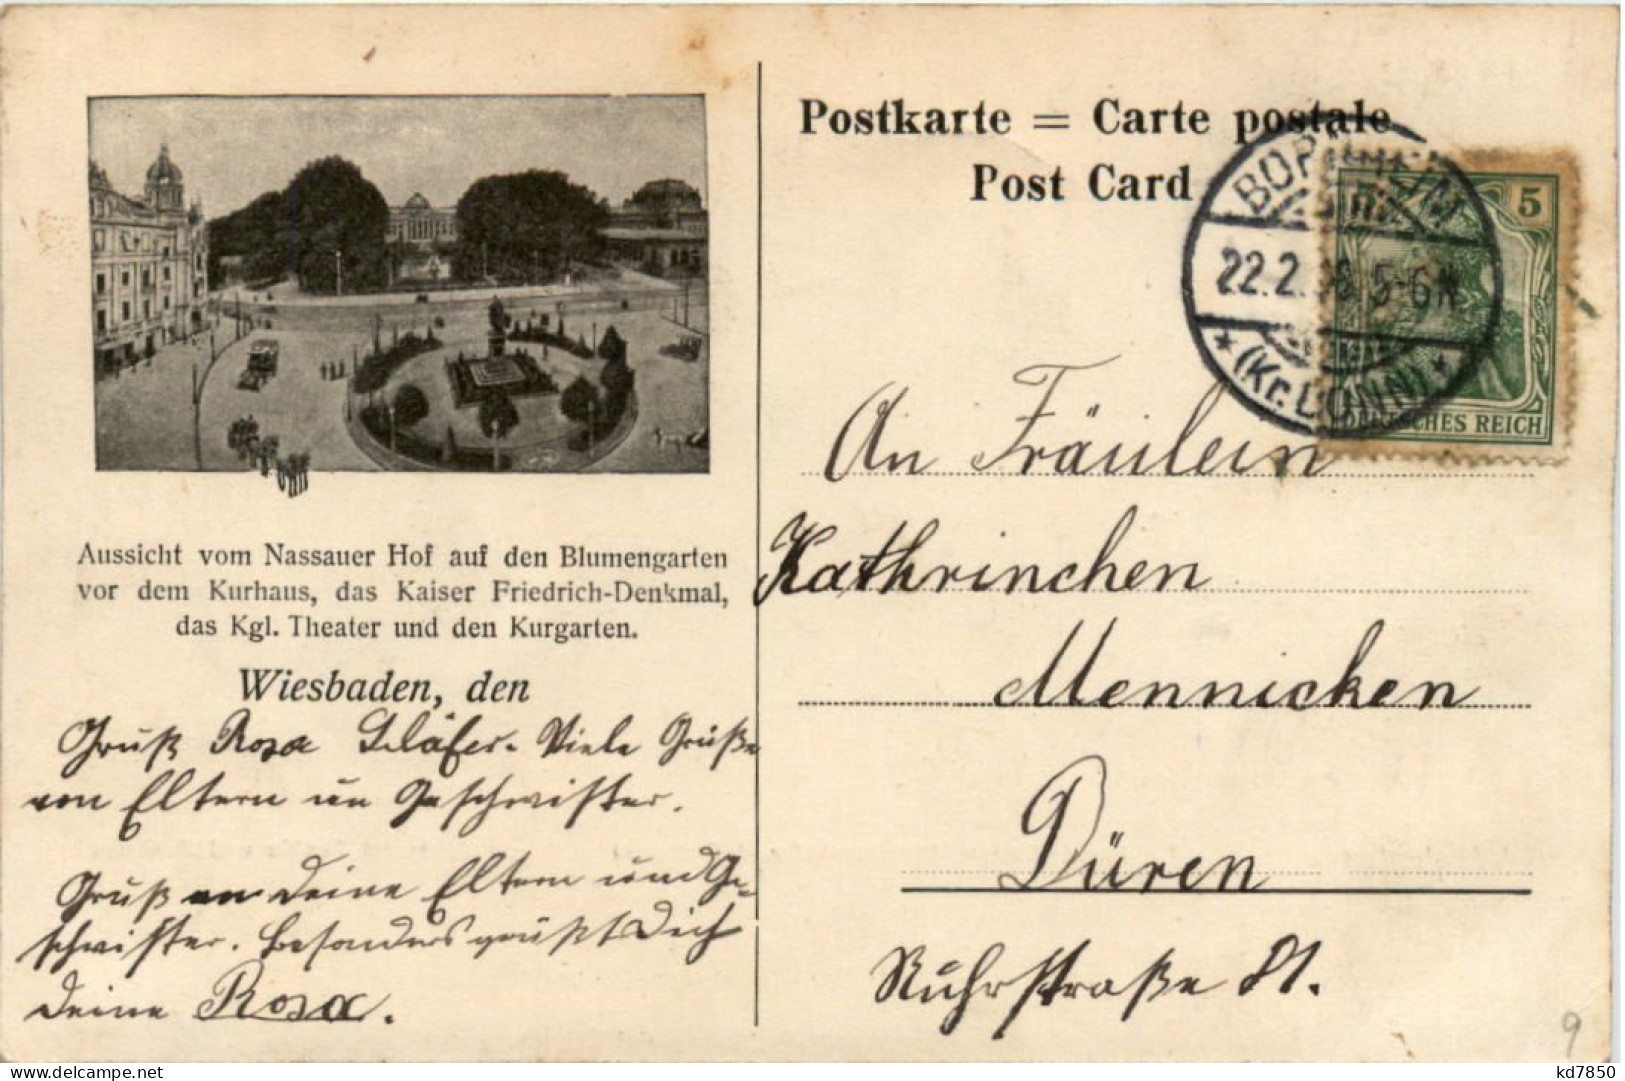 Postkarte = Carte postale
Post Card
BORNHEIM
22.2. 5-6N
(Kr. BONN)
5
DEUTSCHES REICH
Aussicht vom Nassauer Hof auf den Blumengarten
vor dem Kurhaus, das Kaiser Friedrich-Denkmal,
das Kgl. Theater und den Kurgarten.
Wiesbaden, den
Gruß Rosa Schäfer. Viele Grüße
von Eltern un Geschwister.
Gruß an Deine Eltern und Ge-
schwister. Besonders grüßt Dich
Deine Rosa.
An Fräulein
Kathrinchen
Mennicken
Düren
Ruhrstraße 21.
9
kd7850